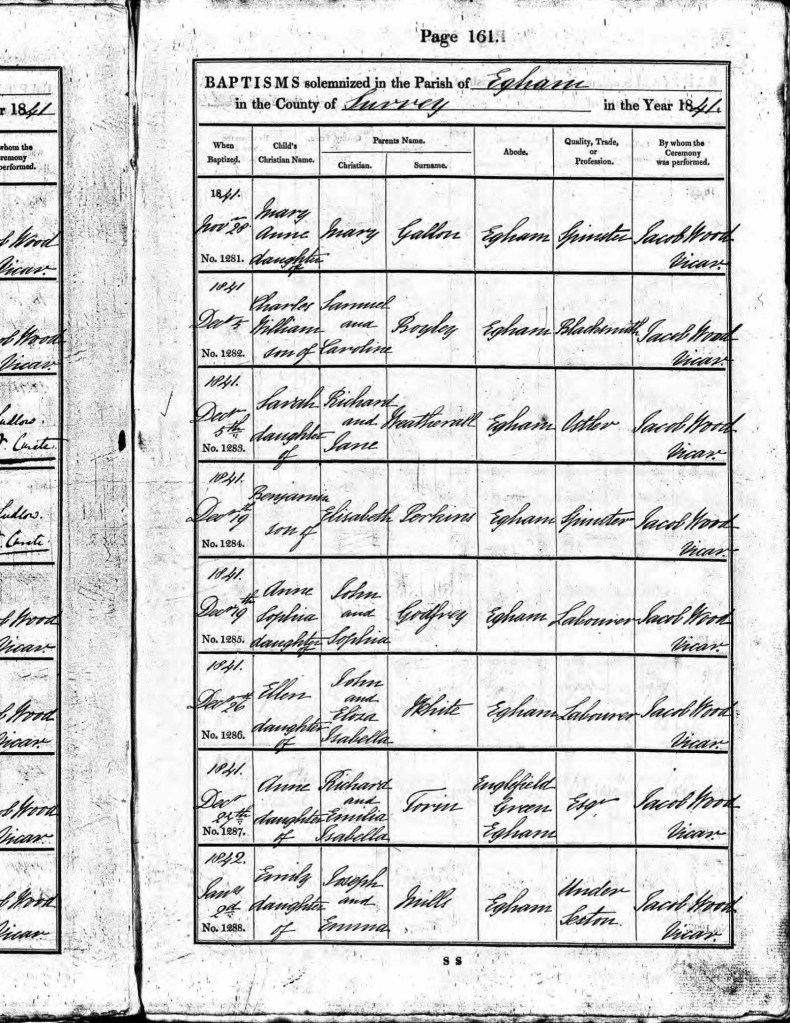 Page 161.
BAPTISMS solemnized in the Parish of Egham
in the County of Surrey in the Year 1841.
When Baptized. Child's Christian Name. Parents Name. Christian. Surname. Abode. Quality, Trade, or Profession. By whom the Ceremony was performed.
1841.
Novr 28
No. 1281.
Mary
Anne
daughter
of
Mary
Gallon
Egham
Spinster
Jacob Wood
Vicar.
1841
Decr 5
No. 1282.
Charles
William
son of
Samuel
and
Caroline
Boyley
Egham
Blacksmith
Jacob Wood
Vicar.
1841.
Decr
5th
No. 1283.
Sarah
daughter
of
Richard
and
Jane
Weatherall
Egham
Ostler
Jacob Wood
Vicar.
1841.
Decr 19th
No. 1284.
Benjamin
son of
Elisabeth
Perkins
Egham
Spinster
Jacob Wood
Vicar.
1841.
Decr 19th
No. 1285.
Anne
Sophia
daughter
of
John
and
Sophia
Godfrey
Egham
Labourer
Jacob Wood
Vicar.
1841.
Decr 26
No. 1286.
Ellen
daughter
of
John
and
Eliza
Isabella
White
Egham
Labourer
Jacob Wood
Vicar.
1841.
Decr
No. 1287.
Anne
daughter
of
Richard
and
Emilia
Isabella
Torin
Englefield
Green
Egham
Esqr
Jacob Wood
Vicar.
1842.
Jany
2nd
No. 1288.
Emily
daughter
of
Joseph
and
Emma
Mills
Egham
Under
Sexton.
Jacob Wood
Vicar.
S S